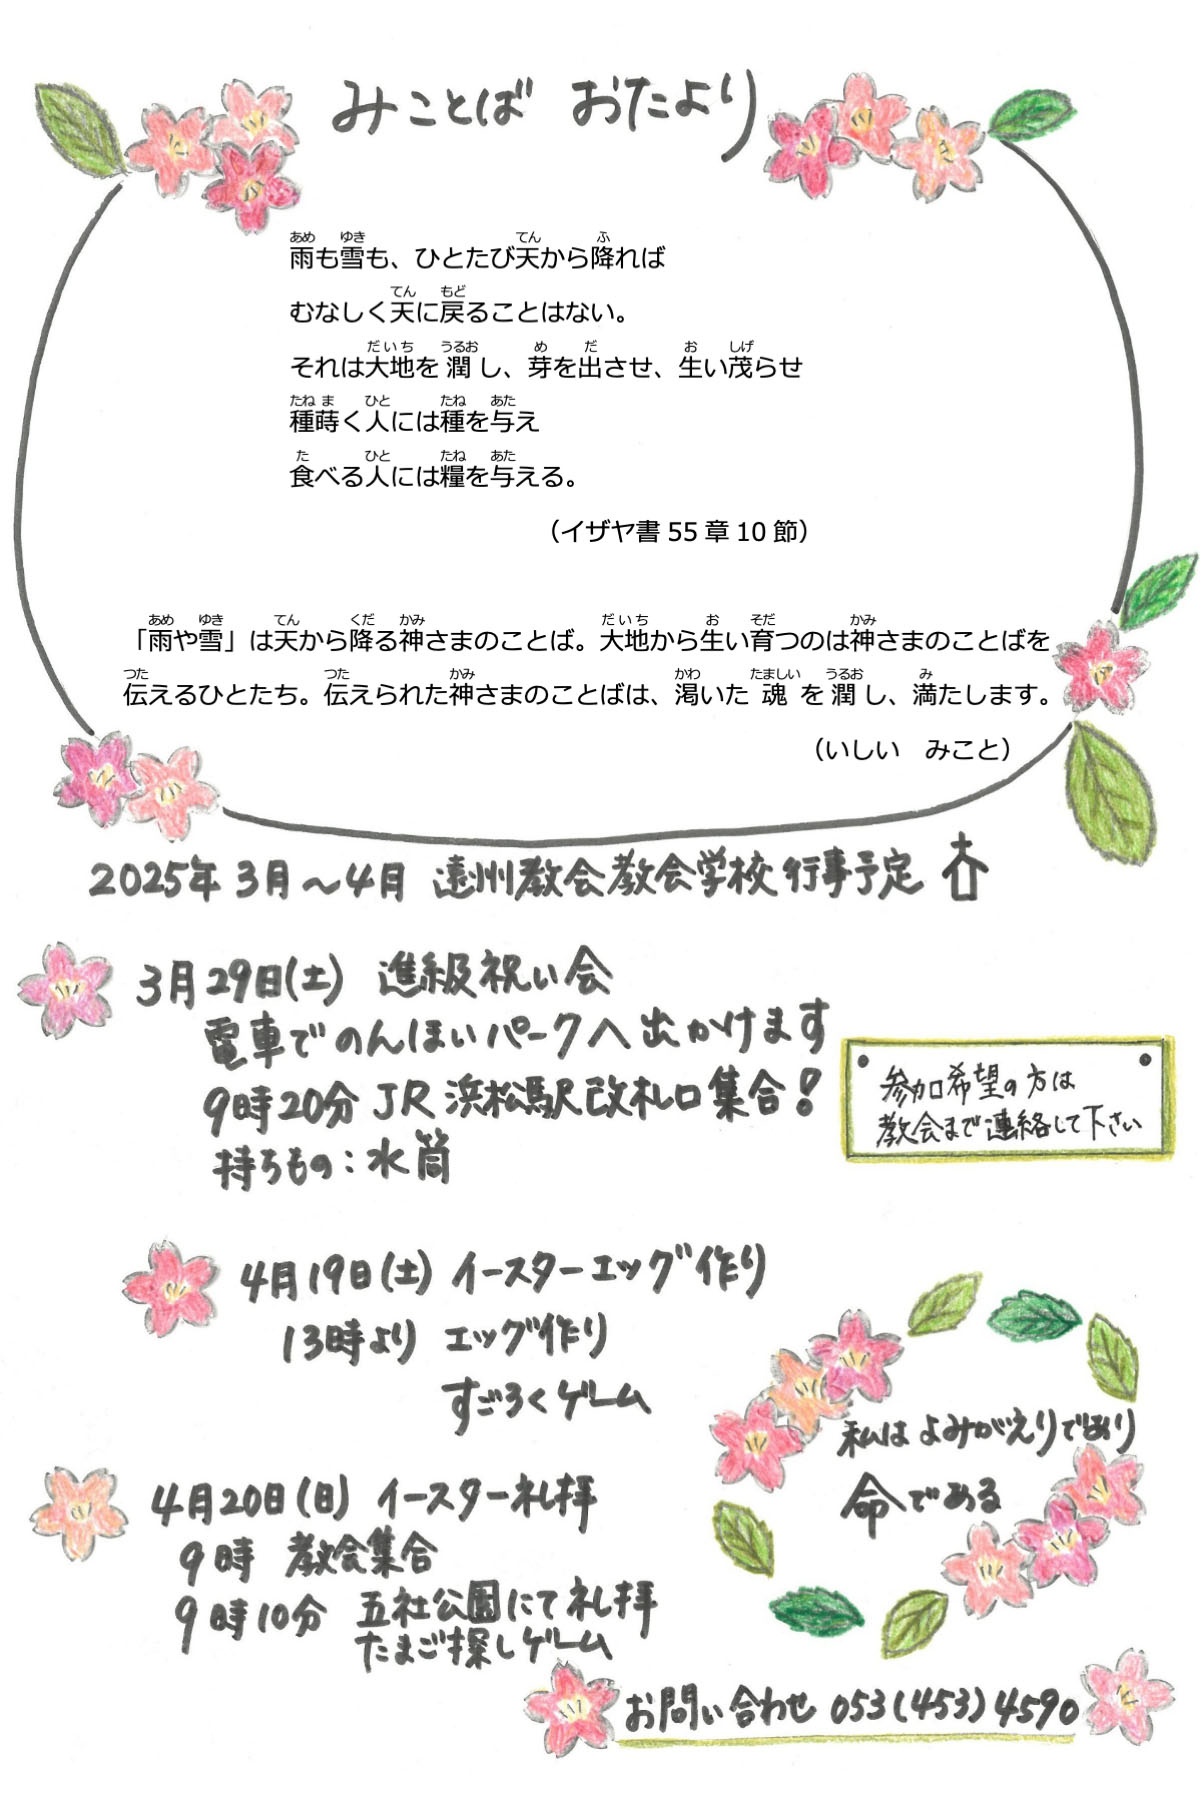 みことば おたより
雨も雪も、ひとたび天から降れば
むなしく天に戻ることはない。
それは大地を潤し、芽を出させ、生い茂らせ
種蒔く人には種を与え
食べる人には糧を与える。
（イザヤ書 55 章 10 節）
「雨や雪」は天から降る神さまのことば。大地から生い育つのは神さまのことばを
伝えるひとたち。伝えられた神さまのことばは、渇いた魂を潤し、満たします。
（いしい　みこと）
2025年 3月～4月 遠州教会教会学校行事予定
3月29日(土) 進級祝い会
電車でのんほいパークへ出かけます
9時20分 JR 浜松駅改札口集合！
持ちもの：水筒
参加希望の方は
教会まで連絡して下さい
4月19日(土) イースターエッグ作り
13時より エッグ作り
すごろくゲーム
私は よみがえりであり
命である
4月20日(日) イースター礼拝
9時 教会集合
9時10分 五社公園にて礼拝
たまご探しゲーム
お問い合わせ 053(453)4590